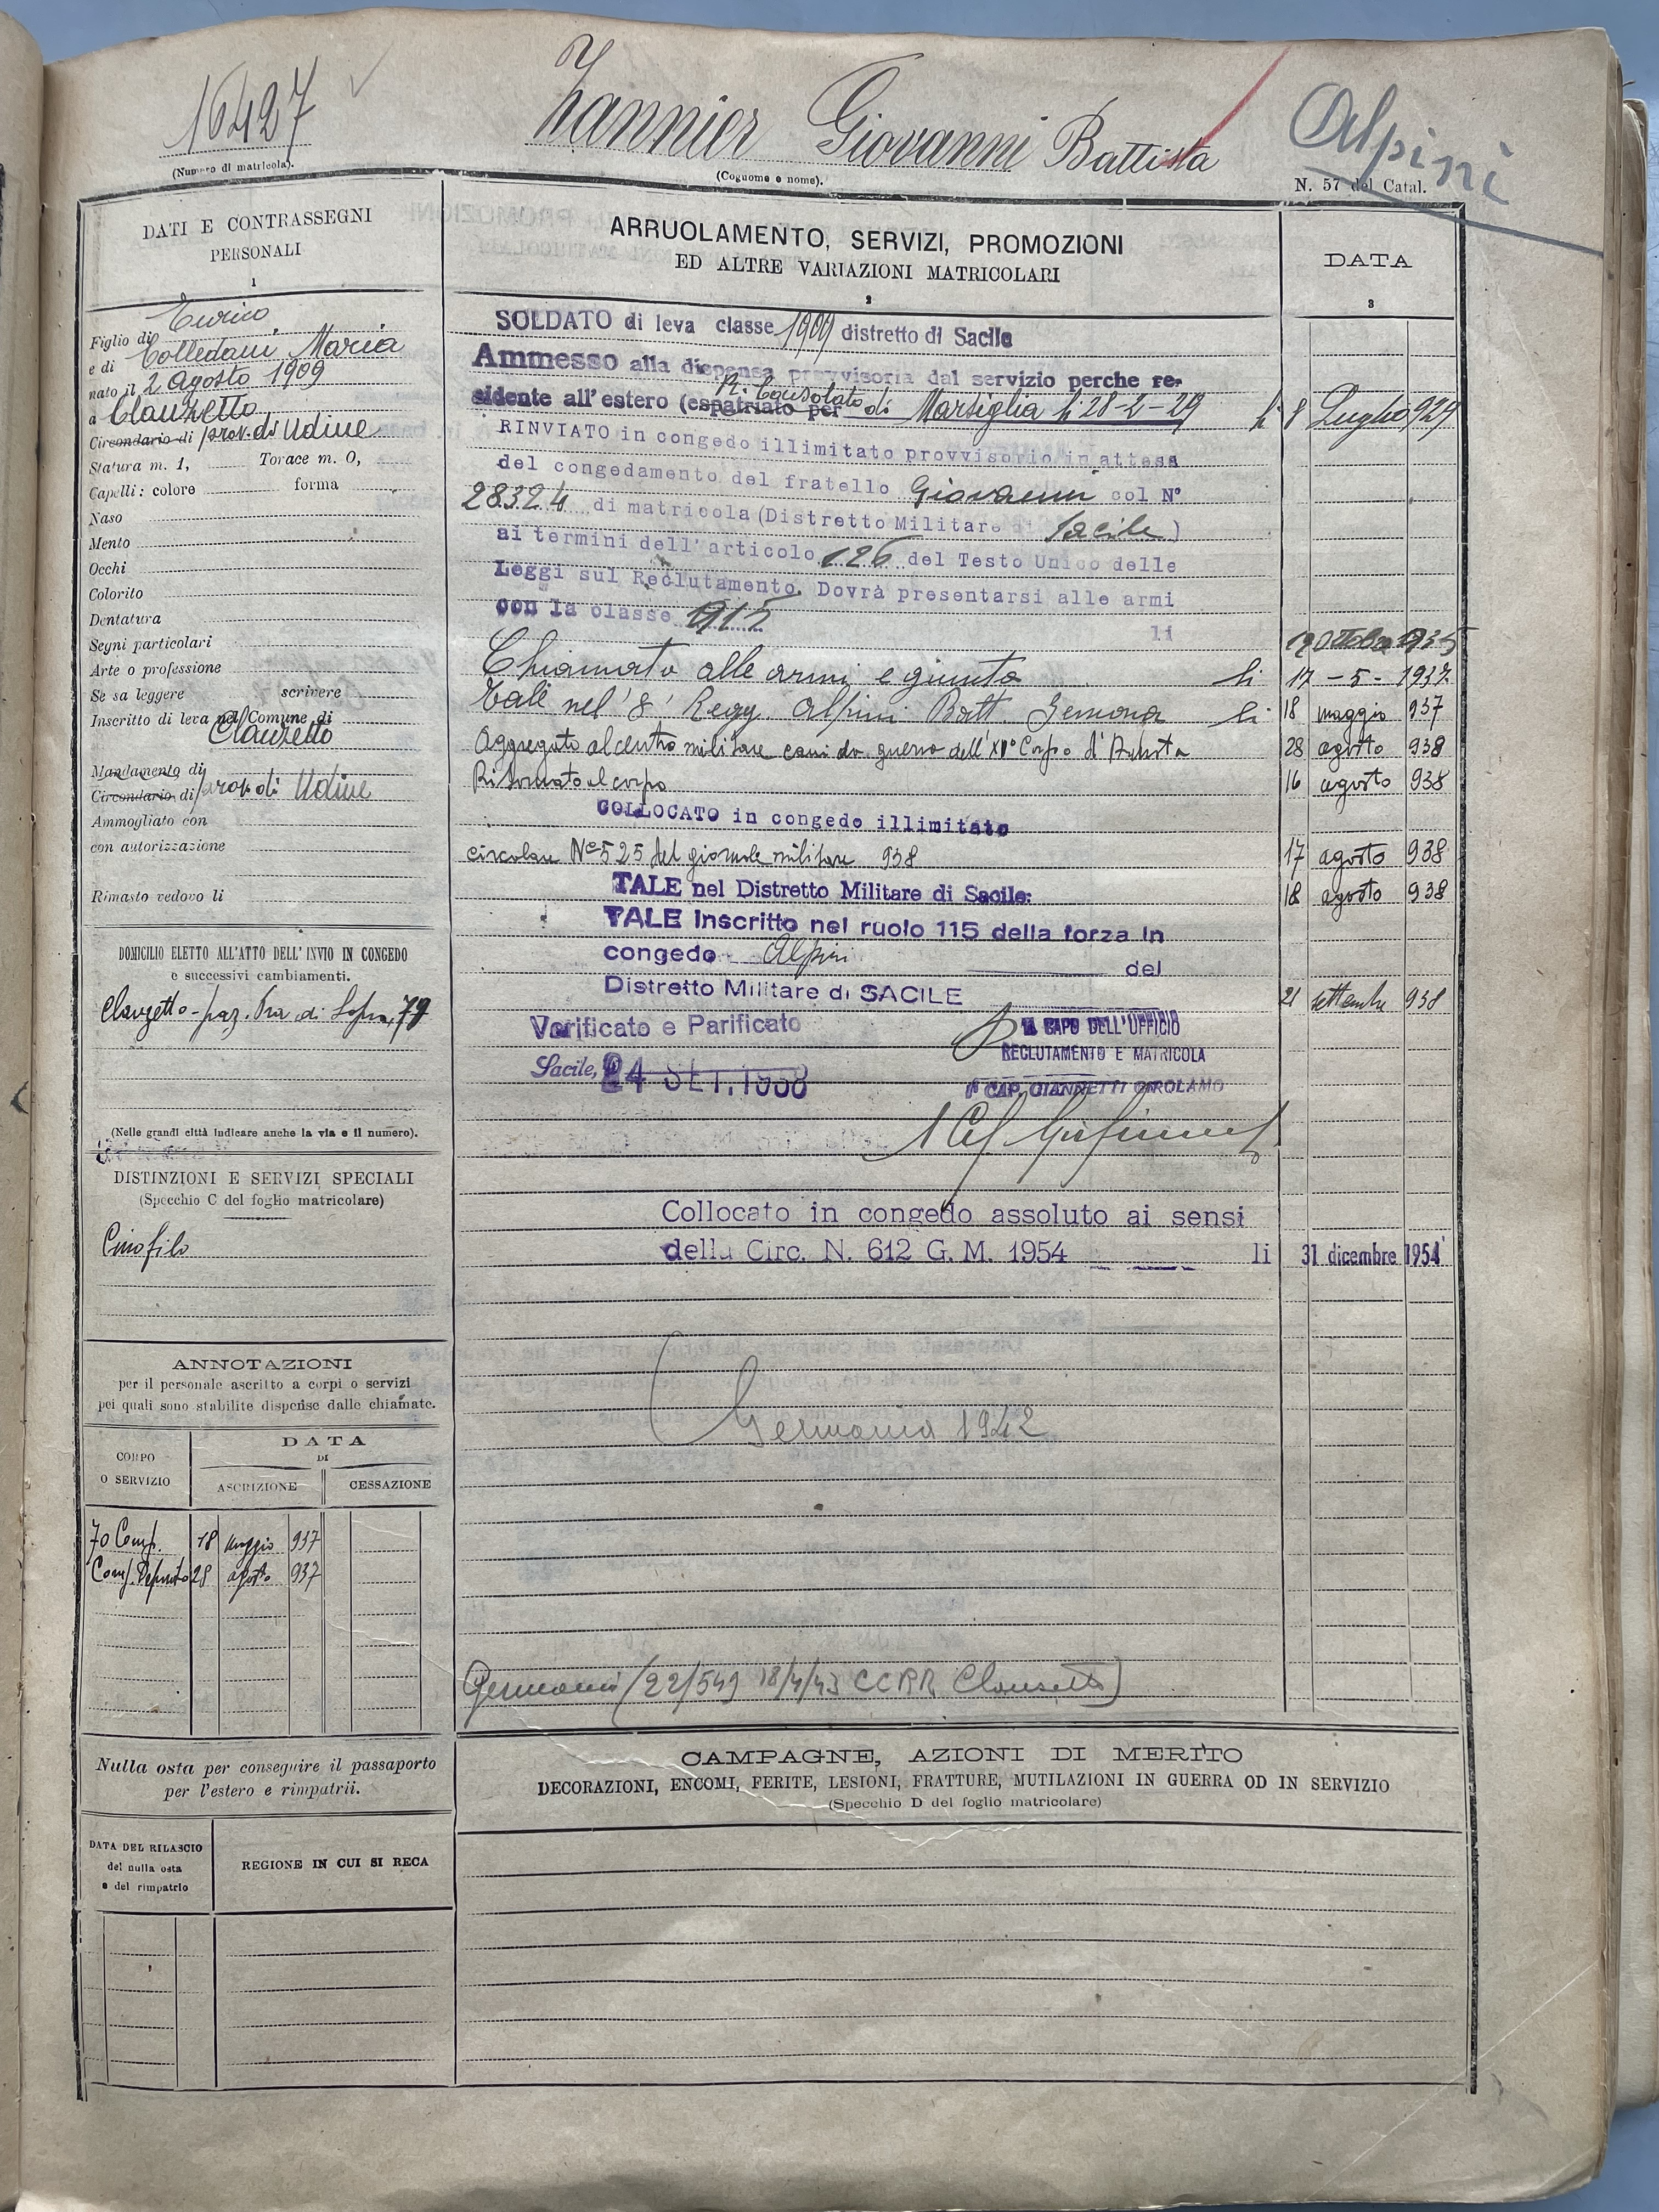 16427
(Numero di matricola).
Zannier Giovanni Battista
(Cognome e nome).
Alpini
N. 57 del Catal.
DATI E CONTRASSEGNI
PERSONALI
1
Figlio di Enrico
e di Colledani Maria
nato il 2 Agosto 1909
a Clauzetto
Circondario di prov. di Udine
Statura m. 1, Torace m. 0,
Capelli: colore forma
Naso
Mento
Occhi
Colorito
Dentatura
Segni particolari
Arte o professione
Se sa leggere scrivere
Inscritto di leva nel Comune di
Clauzetto
Mandamento di
Circondario di prov. di Udine
Ammogliato con
con autorizzazione
Rimasto vedovo li
DOMICILIO ELETTO ALL'ATTO DELL'INVIO IN CONGEDO
e successivi cambiamenti.
Clauzetto - fraz. Pra di Sopra, 79
(Nelle grandi città indicare anche la via e il numero).
DISTINZIONI E SERVIZI SPECIALI
(Specchio C del foglio matricolare)
Cinofilo
ANNOTAZIONI
per il personale ascritto a corpi o servizi
pei quali sono stabilite dispense dalle chiamate.
CORPO
O SERVIZIO
DATA
DI
ASCRIZIONE CESSAZIONE
70 Comp. 18 maggio 937
Comp. Deposito 28 agosto 937
Nulla osta per conseguire il passaporto
per l'estero e rimpatrii.
DATA DEL RILASCIO
del nulla osta
e del rimpatrio
REGIONE IN CUI SI RECA
ARRUOLAMENTO, SERVIZI, PROMOZIONI
ED ALTRE VARIAZIONI MATRICOLARI
2
DATA
3
SOLDATO di leva classe 1909 distretto di Sacile
Ammesso alla dispensa provvisoria dal servizio perche re-
R. Consolato
sidente all'estero (espatriato per di Marsiglia li 28-2-29 li 8 Luglio 929
RINVIATO in congedo illimitato provvisorio in attesa
del congedamento del fratello Giovanni col N°
28324 di matricola (Distretto Militare di Sacile)
ai termini dell'articolo 126 del Testo Unico delle
Leggi sul Reclutamento. Dovrà presentarsi alle armi
con la classe 1915 li 19 Ottobre 1935
Chiamato alle armi e giunto li 17 - 5 - 1937
Tale nel 8° Regg. Alpini Batt. Gemona li 18 maggio 937
Aggregato al centro militare cani da guerra dell'XI° Corpo d'Armata 28 agosto 938
Ritornato al corpo 16 agosto 938
COLLOCATO in congedo illimitato
circolare N° 525 del giornale militare 938 17 agosto 938
TALE nel Distretto Militare di Sacile. 18 agosto 938
TALE Inscritto nel ruolo 115 della forza in
congedo Alpini del
Distretto Militare di SACILE 21 settembre 938
Verificato e Parificato
Sacile, 24 SET. 1938
IL CAPO DELL'UFFICIO
RECLUTAMENTO E MATRICOLA
CAP. GIANNETTI GIROLAMO
Collocato in congedo assoluto ai sensi
della Circ. N. 612 G. M. 1954 li 31 dicembre 1954
Germania 1942
Germania (22/549 18/4/43 CCRR Clauzetto)
CAMPAGNE, AZIONI DI MERITO
DECORAZIONI, ENCOMI, FERITE, LESIONI, FRATTURE, MUTILAZIONI IN GUERRA OD IN SERVIZIO
(Specchio D del foglio matricolare)